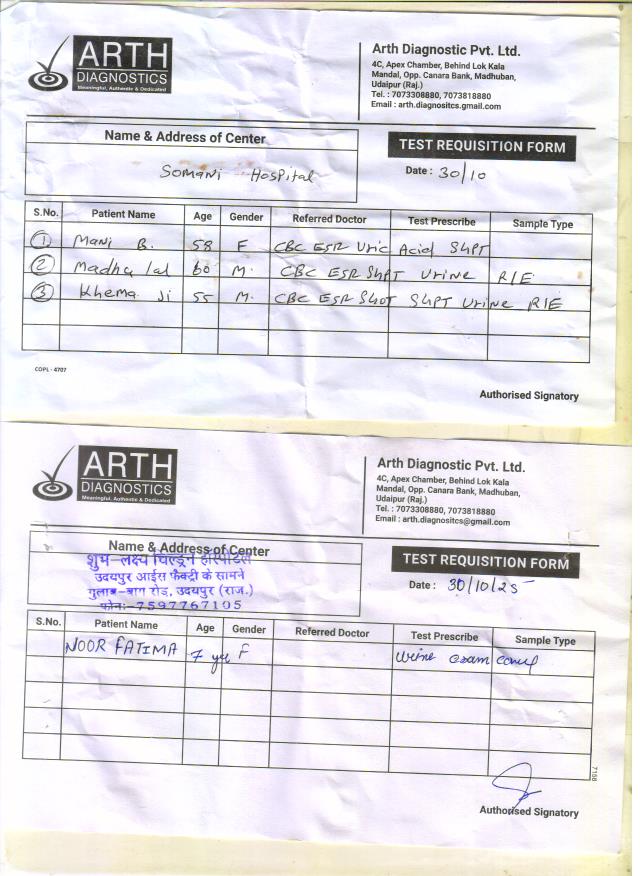 ARTH
DIAGNOSTICS
Meaningful, Authentic & Dedicated
Arth Diagnostic Pvt. Ltd.
4C, Apex Chamber, Behind Lok Kala
Mandal, Opp. Canara Bank, Madhuban,
Udaipur (Raj.)
Tel. : 7073308880, 7073818880
Email : arth.diagnositcs.gmail.com
Name & Address of Center
Somani Hospital
TEST REQUISITION FORM
Date : 30/10
S.No. Patient Name Age Gender Referred Doctor Test Prescribe Sample Type
1 Mani B. 58 F CBC ESR Uric Acid SHPT
2 Madhu lal 60 M. CBC ESR SHPT Urine R/E
3 Khema Ji 55 M. CBC ESR SHOT SHPT Urine R/E
COPL - 4707
Authorised Signatory
ARTH
DIAGNOSTICS
Meaningful, Authentic & Dedicated
Arth Diagnostic Pvt. Ltd.
4C, Apex Chamber, Behind Lok Kala
Mandal, Opp. Canara Bank, Madhuban,
Udaipur (Raj.)
Tel. : 7073308880, 7073818880
Email : arth.diagnositcs@gmail.com
Name & Address of Center
शुभ-लक्ष्य चिल्ड्रन हॉस्पीटल
उदयपुर आईस फैक्ट्री के सामने
गुलाब-बाग रोड, उदयपुर (राज.)
फोन:-7597767105
TEST REQUISITION FORM
Date : 30/10/25
S.No. Patient Name Age Gender Referred Doctor Test Prescribe Sample Type
NOOR FATIMA 7 F Urine exam
7108
Authorised Signatory